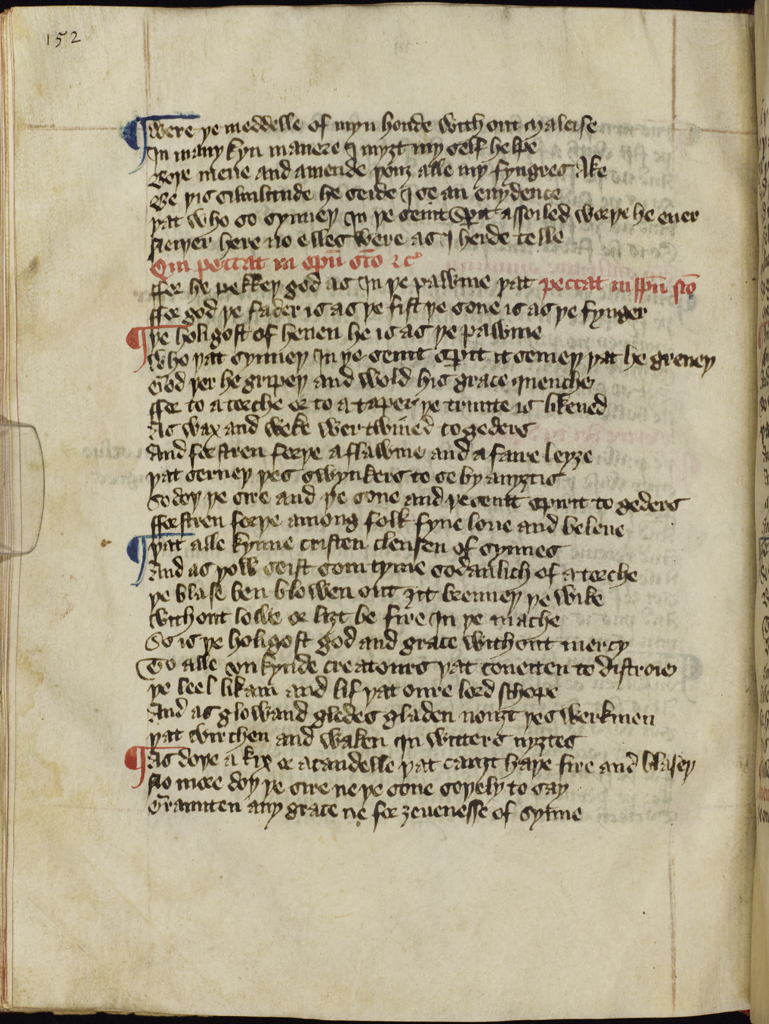 152
¶ Were þe meddelle of myn honde with out maleise
In many kyn manere I myȝt my self helpe
Boþe meue and amende þouȝ alle my fyngres Ake
Be þis similitude he seide I se an euydence
þat who so synneþ In þe seint Spirit assoiled worþe he euer
Neiþer here no elles were as I herde telle
Qui peccat in spiritū scō ⁊cͦ
ffor he pekkeþ god as In þe pawme þat peccat in spū scō
ffor god þe fader is as þe fist þe sone is as þe fynger
¶ þe holigost of heuen he is as þe pawme
Who þat synneþ In þe seint spirit it semeþ þat he greueþ
God þer he gripeþ and wold his grace quenche
ffor to a torche or to a taper þe trinite is likened
As wax and weke wer twined to geders
And fostren forþe a flawme and a faire leyȝe
þat serueþ þes swynkers to se by anyȝtis
So doþ þe sire and þe sone and þe seint spirit to geders
ffostren forþe among folk fyne loue and beleue
¶ þat alle kynne cristen clensen of synnes
And as þow seist som tyme sodanlich of a torche
þe blase ben blowen out ȝit brenneþ þe wike
Without lowe or liȝt be fire In þe mache
So is þe holigost god and grace without mercy
To alle vnkynde creatours þat coueiten to distroie
þe leel likam and lif þat oure lord schope
And as glowand gledes gladen nouȝt þes werkmen
þat wirchen and waken In witters nyȝtes
¶ As doþe a kix or a candelle þat cauȝt haþe fire and blaseþ
No more doþ þe sire ne þe sone soþely to say
Graunten any grace ne forȝeuenesse of synne